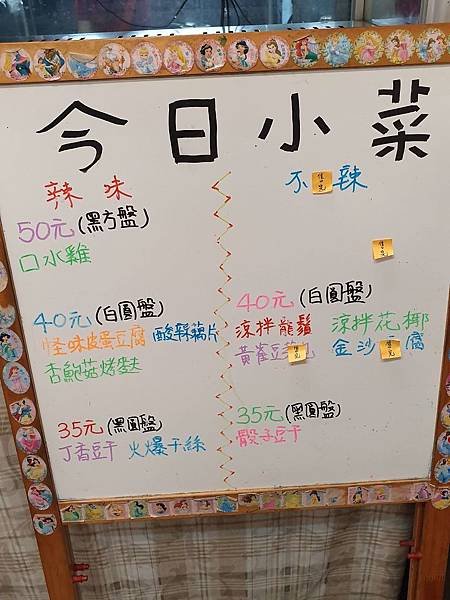 今日小菜
辣味
50元(黑方盤)
口水雞
40元(白圓盤)
怪味皮蛋豆腐 酸辣藕片
杏鮑菇烤麩
35元(黑圓盤)
丁香豆干 火爆干絲
不辣
售完
售完
40元(白圓盤)
涼拌龍鬚 涼拌花椰
黃雀豆 售完 金沙 售完 腐
35元(黑圓盤)
骰子豆干